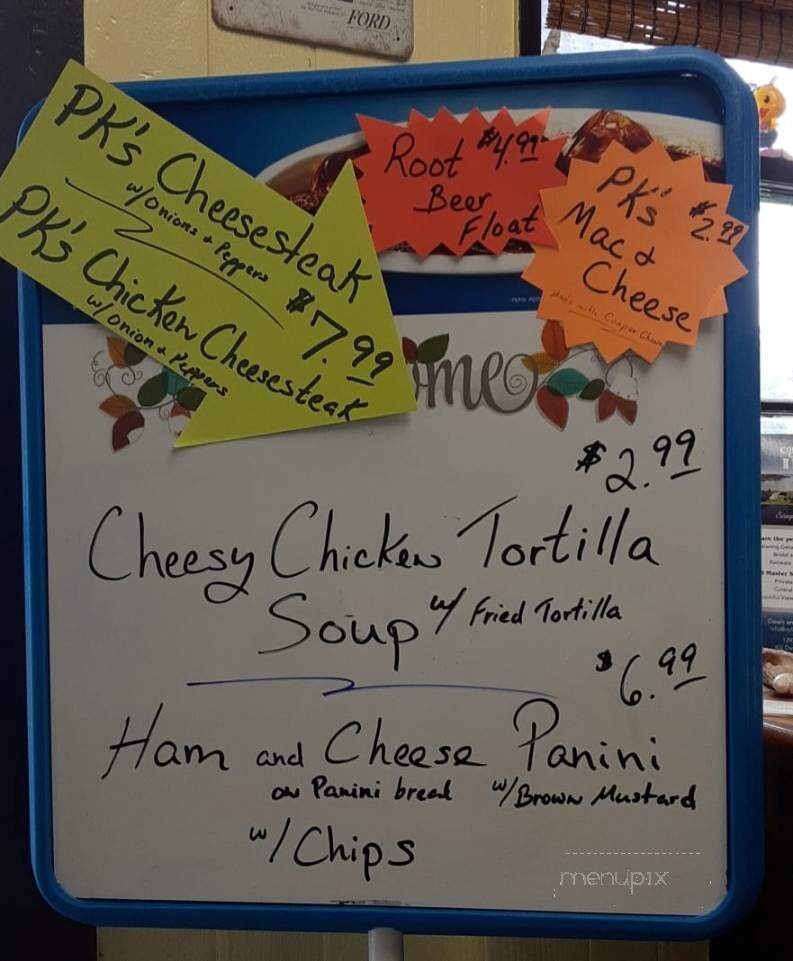 FORD
PK's Cheesesteak
w/onions & Peppers
$7.99
PK's Chicken Cheesesteak
w/onion & Peppers
Root $4.99
Beer
Float
PK's $2.99
Mac &
Cheese
Made with Cooper Cheese
ome
$2.99
Cheesy Chicken Tortilla
Soup w/ Fried Tortilla
$6.99
Ham and Cheese Panini
on Panini bread w/Brown Mustard
w/Chips
menupix